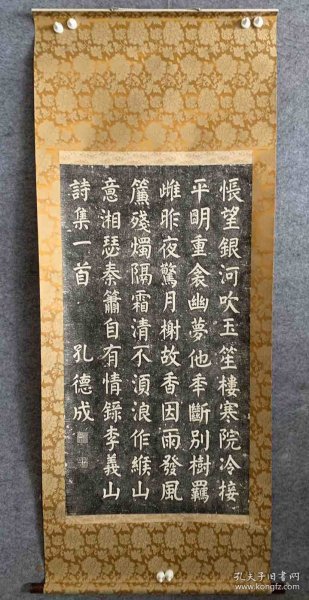 悵望銀河吹玉笙樓寒院冷接
平明重衾幽夢他年斷別樹羈
雌昨夜驚月榭故香因雨發風
簾殘燭隔霜清不須浪作緱山
意湘瑟秦簫自有情錄李義山
詩集一首 孔德成
孔夫子旧书网
www.kongfz.com